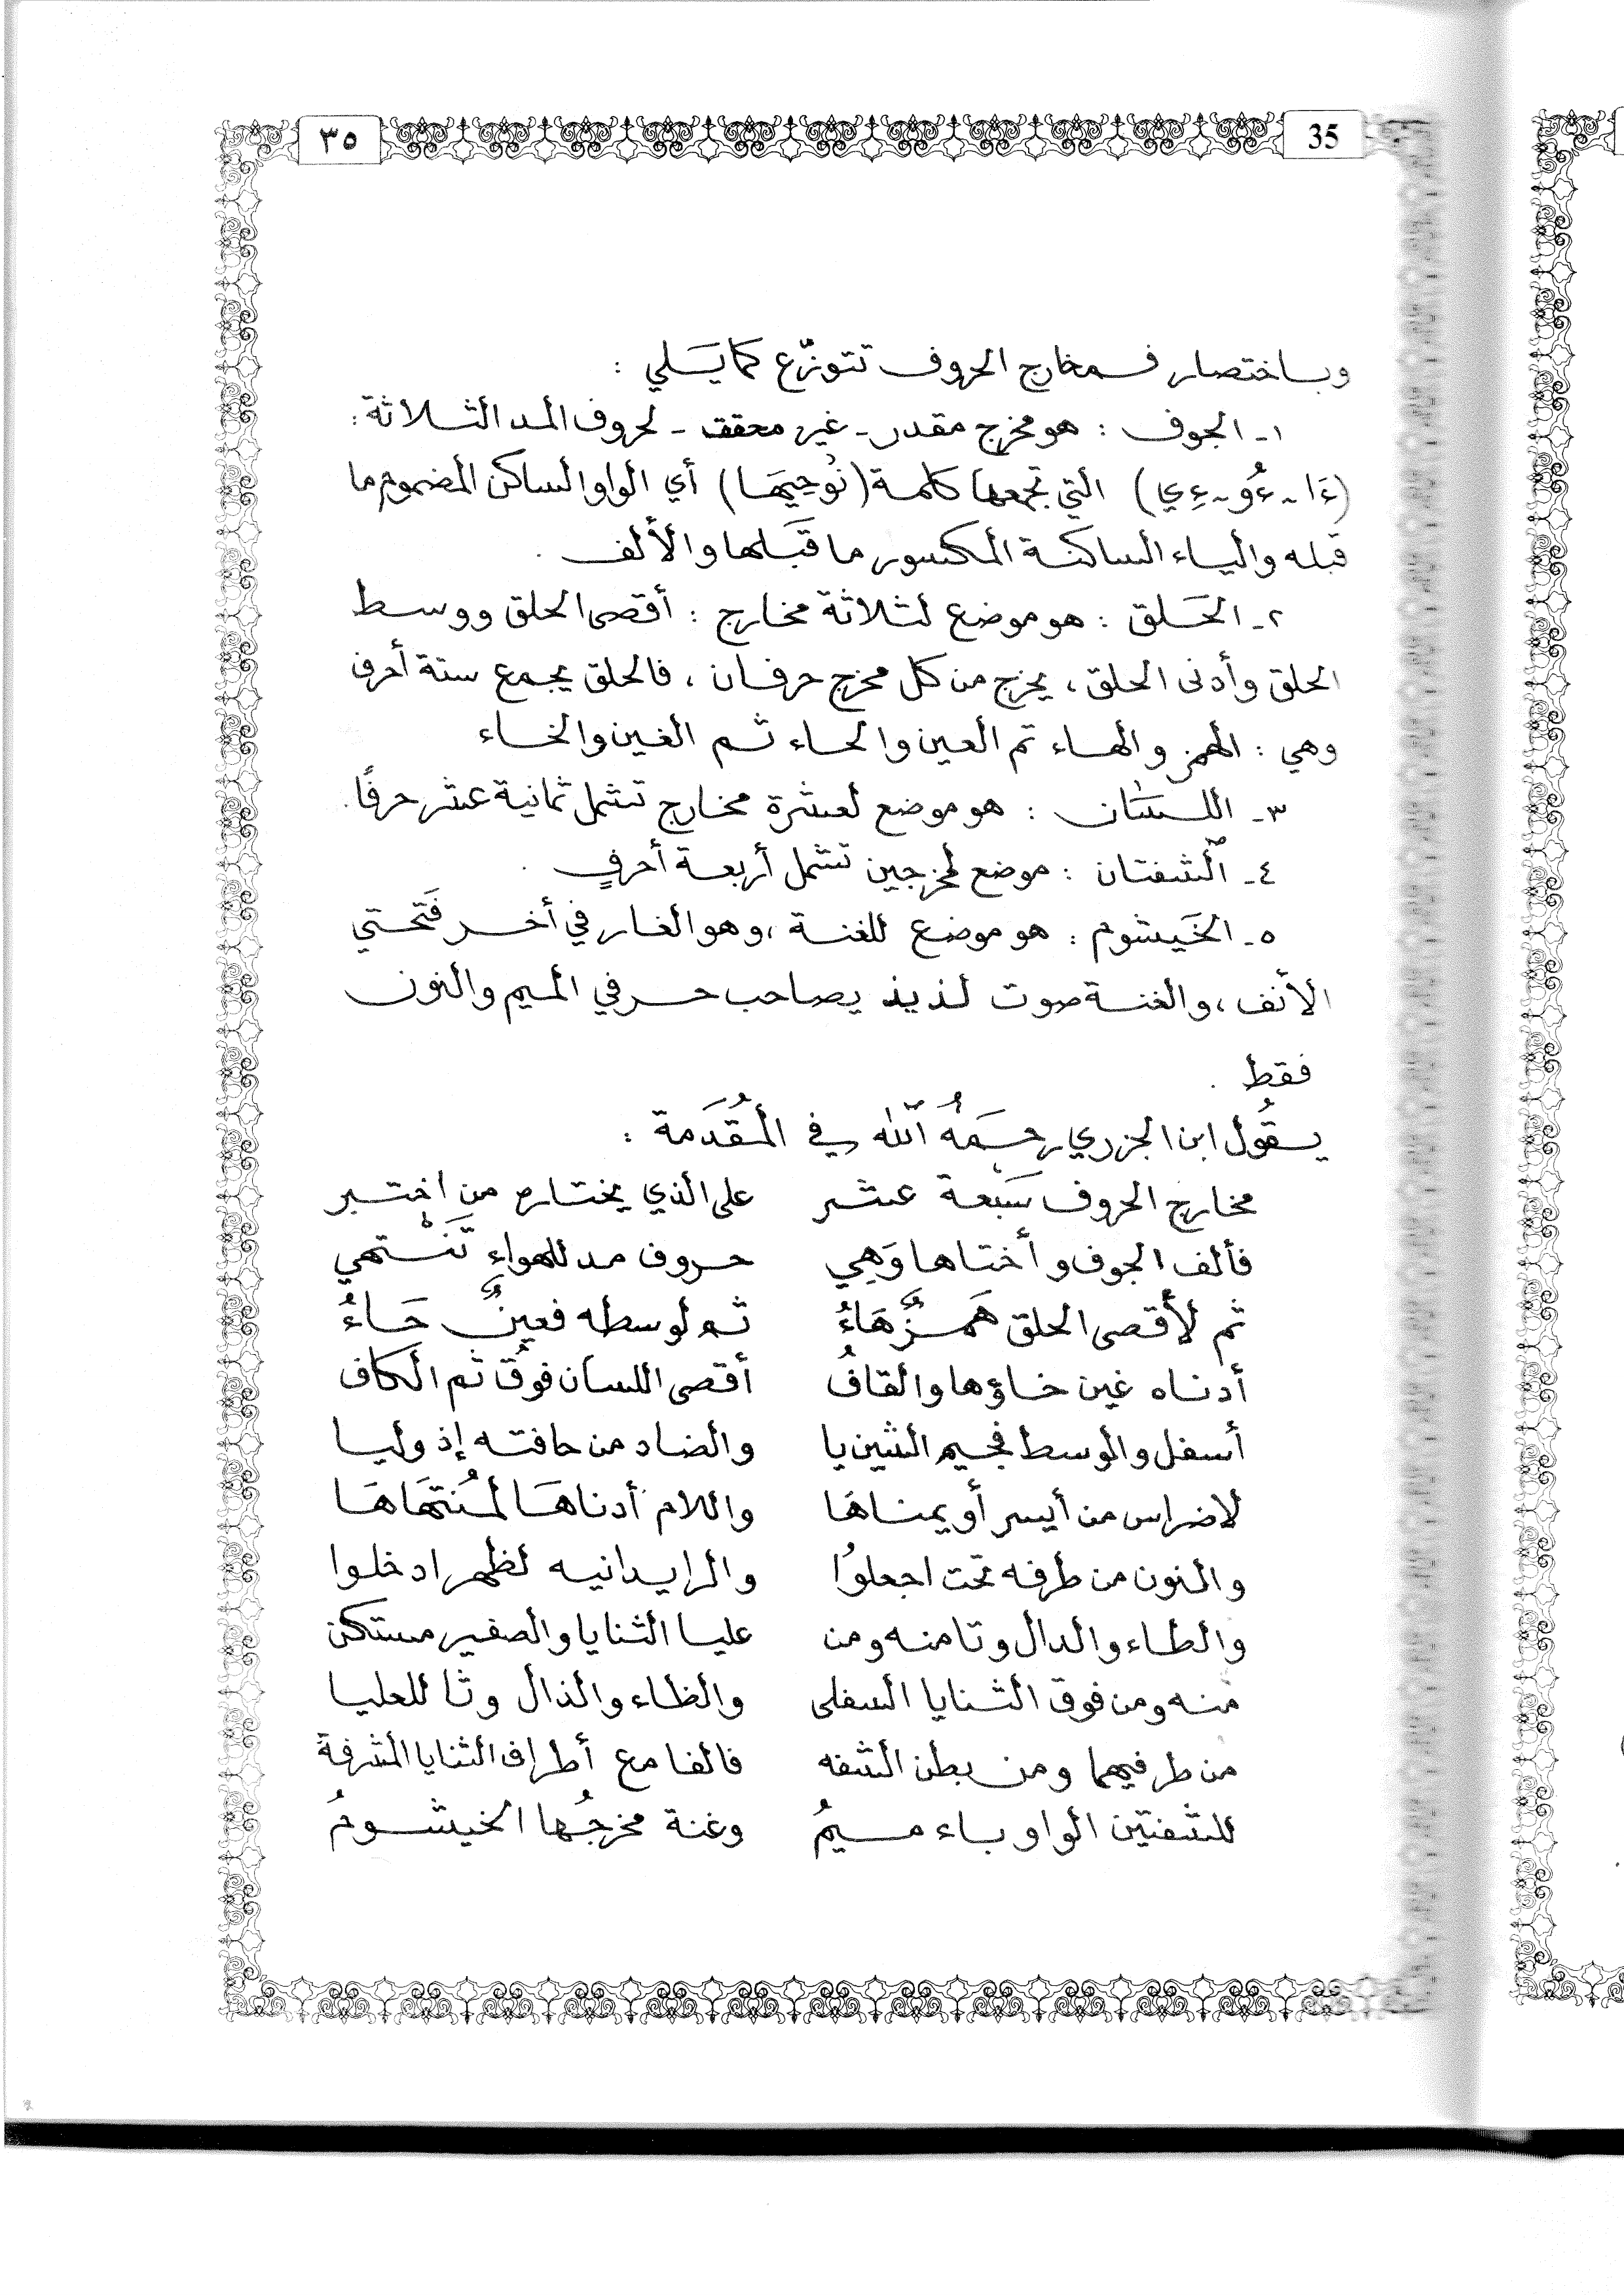 ٣٥ 35
وباختصار فمخارج الحروف تتوزّع كما يَلي :
١ـ الجوف : هو مخرج مقدر ـ غير محقق ـ لحروف المد الثلاثة :
(ءَا ـ ءُو ـ ءِي) التي تجمعها كلمة (نُوحِيهَا) أي الواو الساكن المضموم ما
قبله والياء الساكنة المكسور ما قَبلها والألف .
٢ـ الحَلق : هو موضع لثلاثة مخارج : أقصى الحلق ووسط
الحلق وأدنى الحلق ، يخرج من كل مخرج حرفان ، فالحلق يجمع ستة أحرف
وهي : الهمز والهاء ثم العين والحاء ثم الغين والخاء
٣ـ اللسَان : هو موضع لعشرة مخارج تشمل ثمانية عشر حرفًا .
٤ـ الشفتان : موضع لمخرجين تشمل أربعة أحرفٍ .
٥ـ الخَيشوم : هو موضع للغنة ، وهو الغار في أخر فَتحتي
الأنف ، والغنة صوت لذيذ يصاحب حرفي الميم والنون
فقط .
يقُول ابن الجزري رحمَهُ اللّه في المُقَدمة :
مخارج الحروف سَبعة عشر على الذي يختاره من اختبر
فألف الجوف وأختاها وَهِي حروف مد للهواء تَنْتهي
ثم لأقصى الحلق هَمزٌ هَاءُ ثم لوسطه فعينٌ حَاءُ
أدناه غين خاؤها والقافُ أقصى اللسان فوقُ ثم الكاف
أسفل والوسط فجيم الشين يا والضاد من حافته إذ وليا
لاضراس من أيسر أو يمناها واللام أدناهَا لمُنتَهَاهَا
والنون من طرفه تحت اجعلوُا والرا يدانيه لظهر ادخلوا
والطاء والدال وتا منه ومن عليا الثنايا والصفير مستكن
منه ومن فوق الثنايا السفلى والظاء والذال وثا للعليا
من طرفيهما ومن بطن الشفه فالفا مع أطراف الثنايا المشرفة
للشفتين الواو باء ميمُ وغنة مخرجُها الخيشومُ